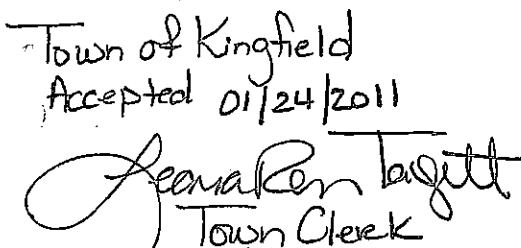 Town of Kingfield
Accepted 01/24/2011
Leanna Targett
Town Clerk